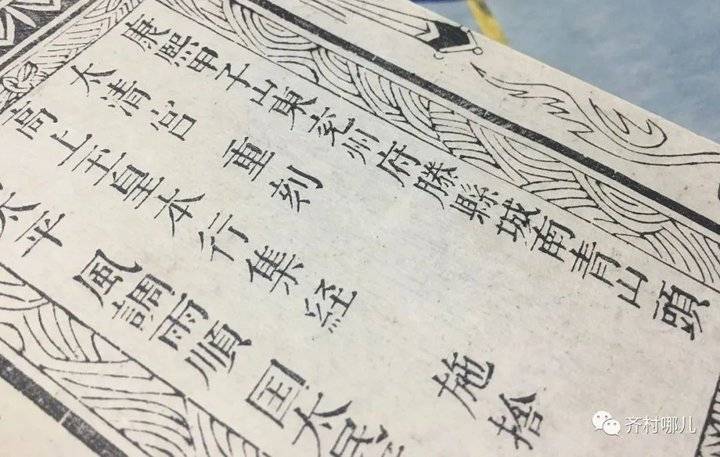 康熙甲子山東兖州府滕縣城南青山頭
太清宫 重刻
高上玉皇本行集経 施捨
太平 風調雨順 囯太民
齐村哪儿